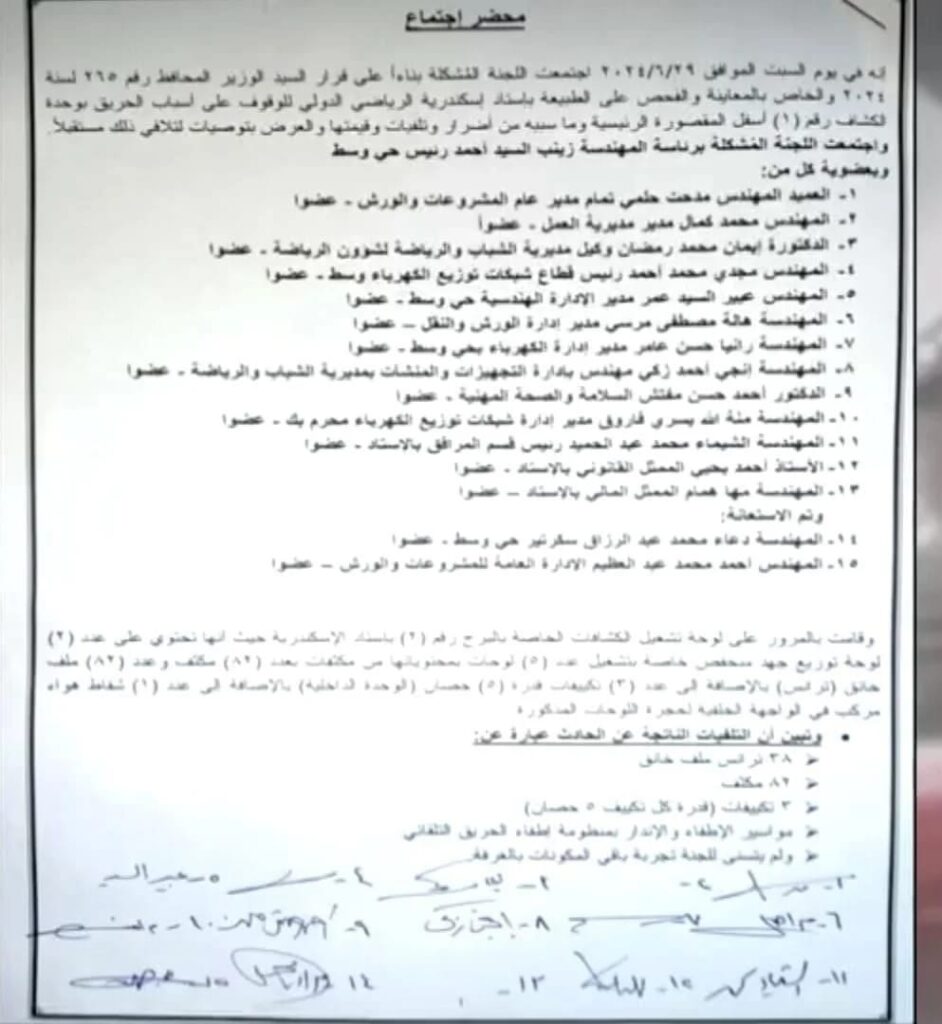 محضر إجتماع
إنه في يوم السبت الموافق ٢٠٢٤/٦/٢٩ اجتمعت اللجنة المُشكلة بناءاً على قرار السيد الوزير المحافظ رقم ٢٦٥ لسنة
٢٠٢٤ والخاص بالمعاينة والفحص على الطبيعة بإستاد إسكندرية الرياضي الدولي للوقوف على أسباب الحريق بوحدة
كشاف رقم (١) أسفل المقصورة الرئيسية وما سببه من أضرار وتلفيات وقيمتها والعرض بتوصيات لتلافي ذلك مستقبلاً.
واجتمعت اللجنة المُشكلة برئاسة المهندسة زينب السيد أحمد رئيس حي وسط
وبعضوية كل من:
١- العميد المهندس مدحت حلمي تمام مدير عام المشروعات والورش - عضوا
٢- المهندس محمد كمال مدير مديرية العمل - عضواً
٣- الدكتورة إيمان محمد رمضان وكيل مديرية الشباب والرياضة لشؤون الرياضة - عضوا
٤- المهندس مجدي محمد أحمد رئيس قطاع شبكات توزيع الكهرباء وسط - عضوا
٥- المهندس عبير السيد عمر مدير الإدارة الهندسية حي وسط - عضوا
٦- المهندسة هالة مصطفى مرسي مدير إدارة الورش والنقل – عضوا
٧- المهندسة رانيا حسن عامر مدير إدارة الكهرباء بحي وسط - عضوا
٨- المهندسة إنجي أحمد زكي مهندس بإدارة التجهيزات والمنشات بمديرية الشباب والرياضة - عضوا
٩- الدكتور أحمد حسن مفتش السلامة والصحة المهنية - عضوا
١٠- المهندسة منة الله يسري فاروق مدير إدارة شبكات توزيع الكهرباء محرم بك - عضوا
١١- المهندسة الشيماء محمد عبد الحميد رئيس قسم المرافق بالاستاد - عضوا
١٢- الأستاذ أحمد يحيى الممثل القانوني بالاستاد - عضوا
١٣- المهندسة مها همام الممثل المالي بالاستاد – عضوا
وتم الاستعانة:
١٤- المهندسة دعاء محمد عبد الرزاق سكرتير حي وسط - عضوا
١٥- المهندس أحمد محمد عبد العظيم الادارة العامة للمشروعات والورش – عضوا
وقامت بالمرور على لوحة تشغيل الكشافات الخاصة بالبرج رقم (٢) باستاد الاسكندرية حيث أنها تحتوي على عدد (٢)
لوحة توزيع جهد منخفض خاصة بتشغيل عدد (٥) لوحات بمحتوياتها من مكثفات بعدد (٨٢) مكثف وعدد (٨٢) ملف
خانق (ترانس) بالإضافة الى عدد (٣) تكييفات قدرة (٥) حصان (الوحدة الداخلية) بالاضافة الى عدد (١) شفاط هواء
مركب في الواجهة الخلفية لحجرة اللوحات المذكورة.
• وتبين أن التلفيات الناتجة عن الحادث عبارة عن:
➢ ٣٨ ترانس ملف خانق
➢ ٨٢ مكثف
➢ ٣ تكييفات (قدرة كل تكييف ٥ حصان)
➢ مواسير الإطفاء والإنذار بمنظومة إطفاء الحريق التلقائي
➢ ولم يتسنى للجنة تجربة باقي المكونات بالغرفة.
٢- ٤- ٥- عبير السيد
٦- ٨- إنجي زكي ٩- ١٠-
١١- ١٣- ١٤
١